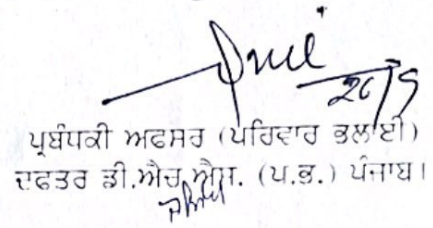 26/5
ਪ੍ਰਬੰਧਕੀ ਅਫਸਰ (ਪਰਿਵਾਰ ਭਲਾਈ)
ਦਫਤਰ ਡੀ.ਐਚ.ਐਸ. (ਪ.ਭ.) ਪੰਜਾਬ।